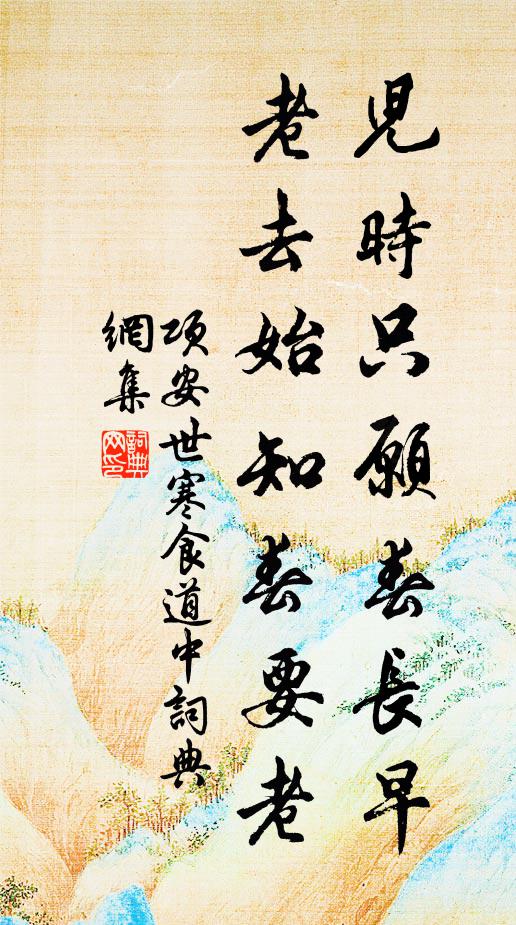 兒時只願春長早
老去始知春要老
項安世寒食道中詞典
網集
詞典
网印